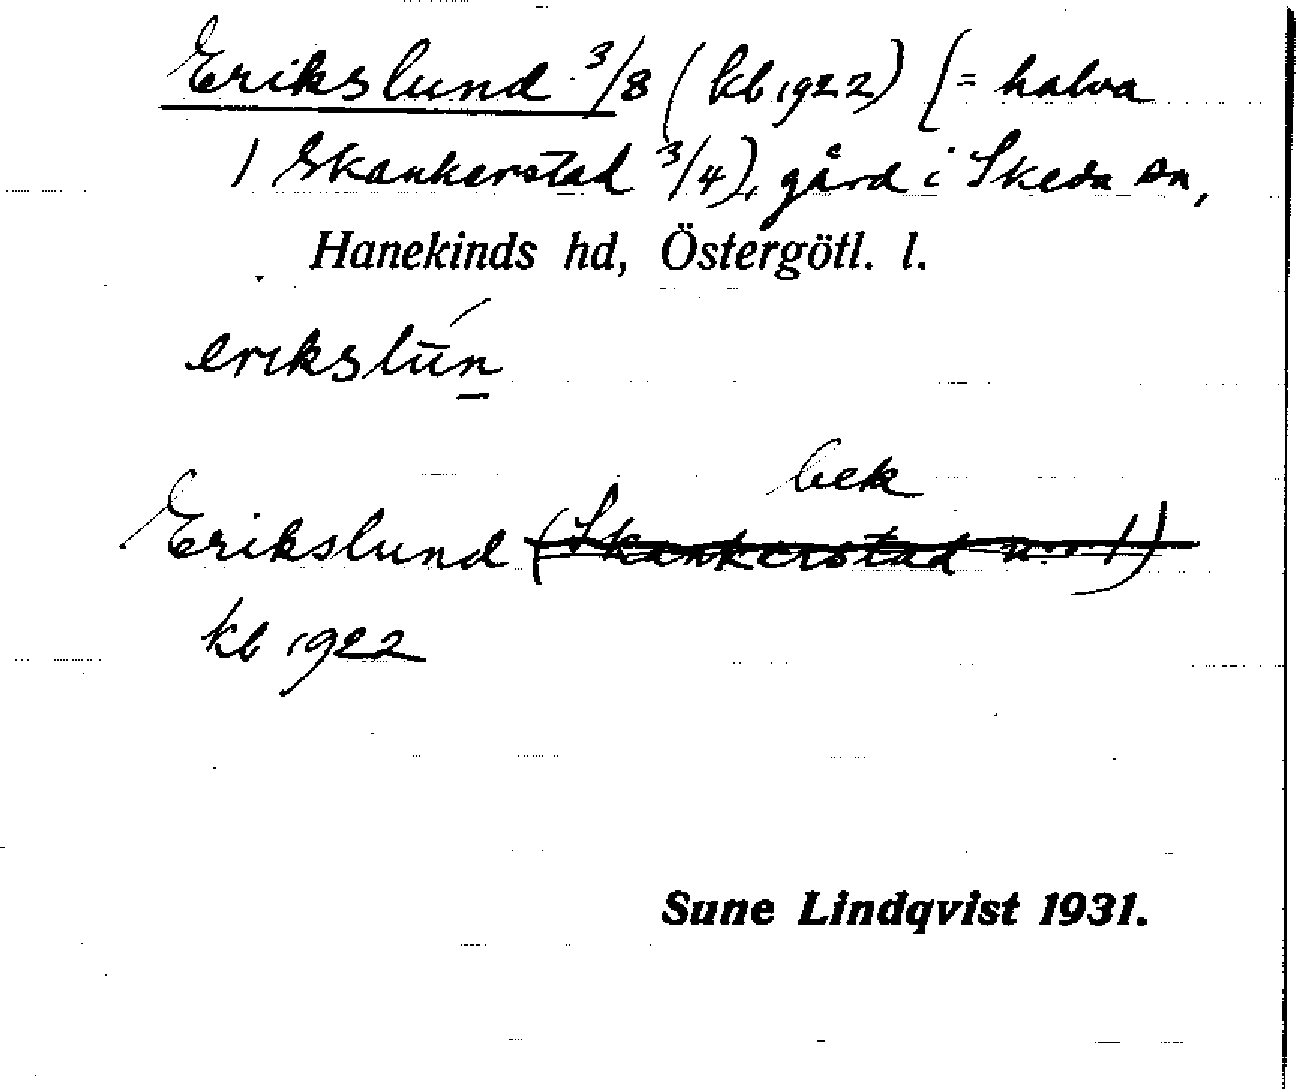 Erikslund 3/8 (kb 1922) (= halva
1 Skankerstad 3/4), gård i Skeda sn,
Hanekinds hd, Östergötl. l.
erikslún
bek
Erikslund (Skankerstad n:o 1)
kb 1922
Sune Lindqvist 1931.